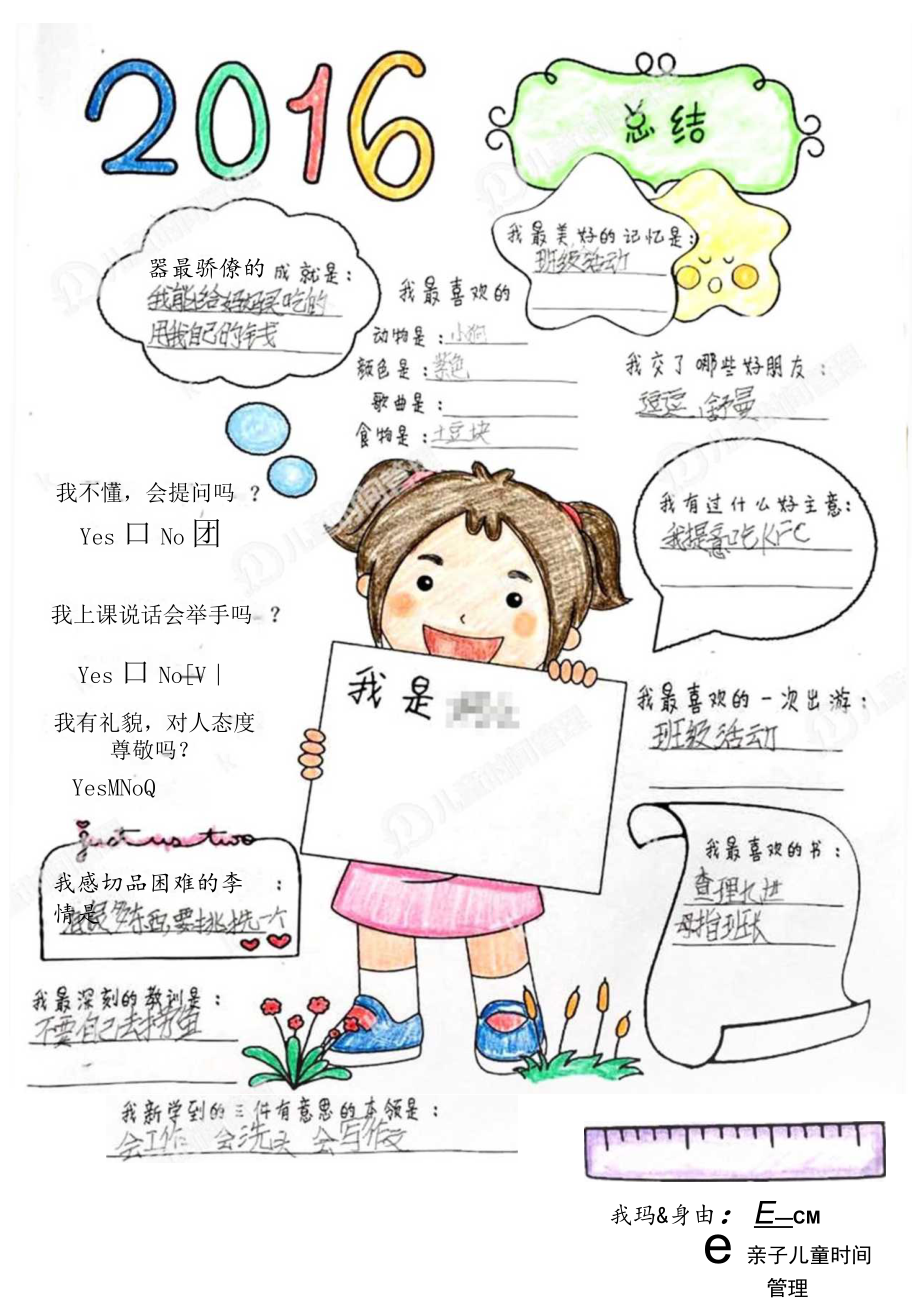 2016
总结
我最美好的记忆是:
班级活动
器最骄僚的成就是:
我能给妈妈买吃的
用我自己的钱
我最喜欢的
动物是:小狗
颜色是:紫色
歌曲是:
食物是:土豆块
我交了哪些好朋友:
逗逗 舒曼
我不懂，会提问吗 ?
Yes 口 No 团
我有过什么好主意:
我提意吃KFC
我上课说话会举手吗 ?
Yes 口 No[V |
我是
我有礼貌，对人态度
尊敬吗?
YesMNoQ
我最喜欢的一次出游:
班级活动
just us two
我感切品困难的李 :
情是
东西,要挑选一个
我最喜欢的书:
查理九世
拇指班长
我最深刻的教训是:
不要自己去
我新学到的三件有意思的本领是:
会工作 会洗 会写作文
我玛&身由: E—CM
e 亲子儿童时间
管理
儿童时间管理